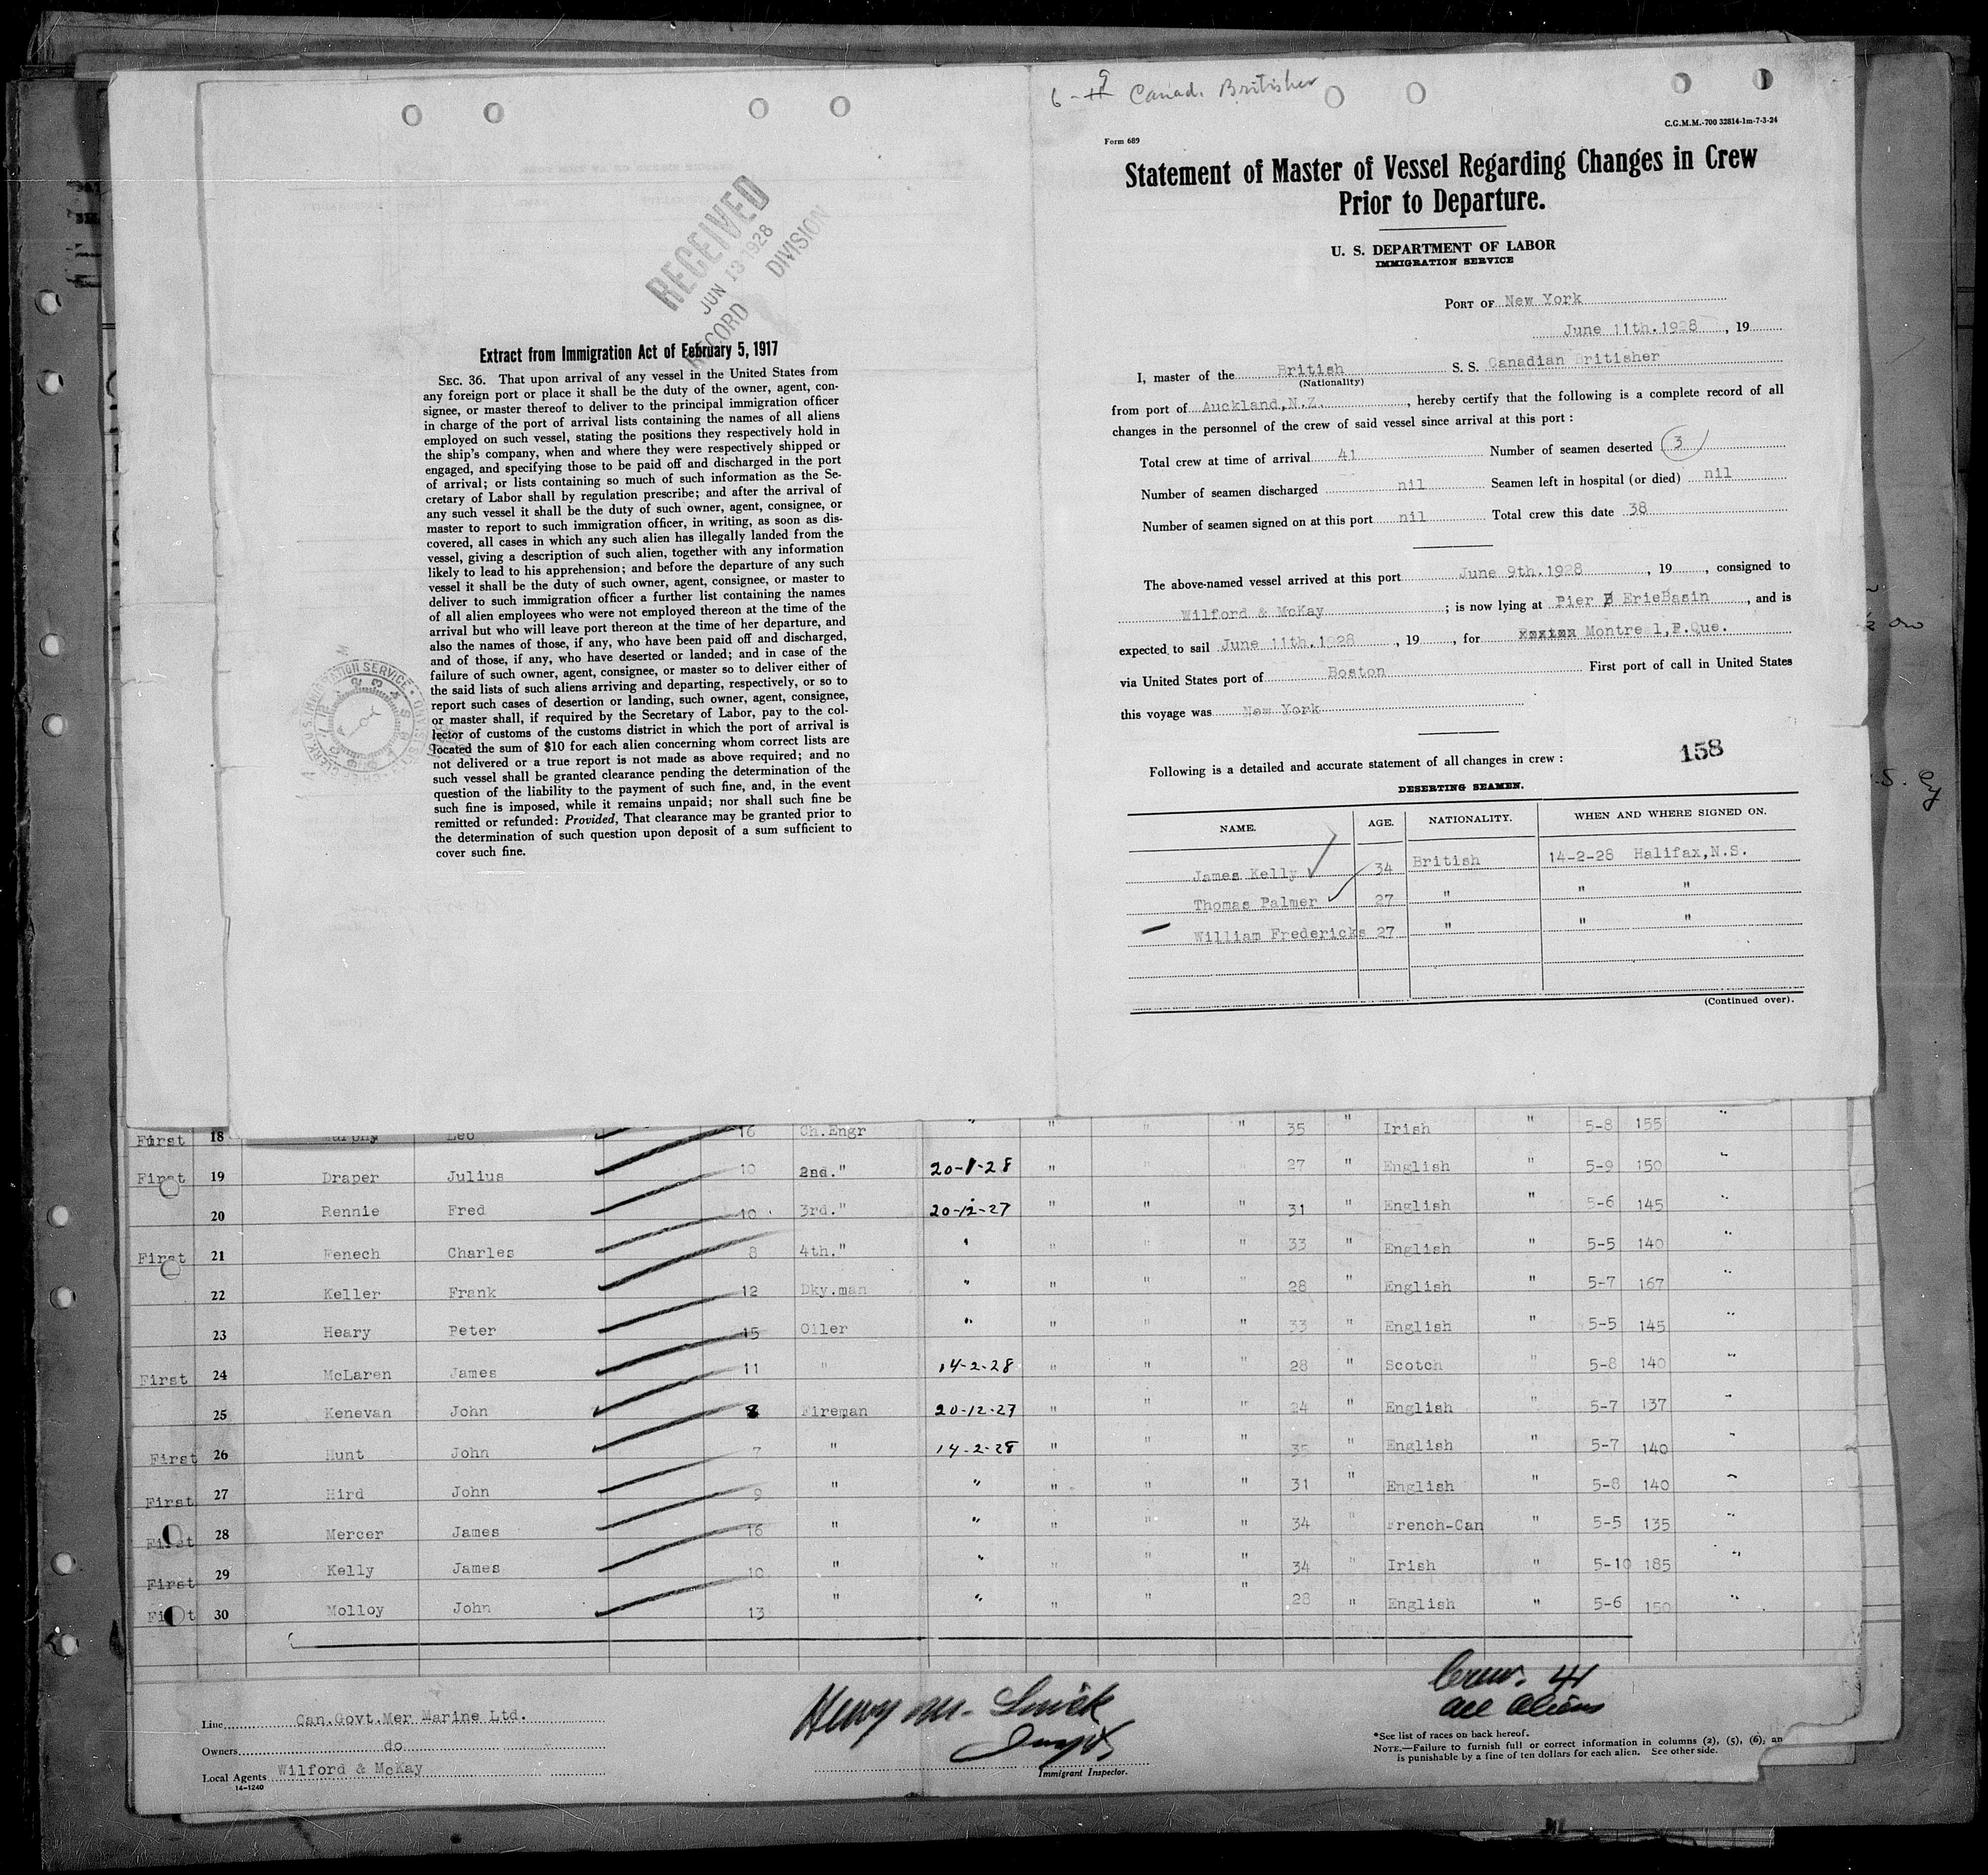 RECEIVED
JUN 13 1928
RECORD DIVISION
Extract from Immigration Act of February 5, 1917
SEC. 36. That upon arrival of any vessel in the United States from
any foreign port or place it shall be the duty of the owner, agent, con-
signee, or master thereof to deliver to the principal immigration officer
in charge of the port of arrival lists containing the names of all aliens
employed on such vessel, stating the positions they respectively hold in
the ship's company, when and where they were respectively shipped or
engaged, and specifying those to be paid off and discharged in the port
of arrival; or lists containing so much of such information as the Se-
cretary of Labor shall by regulation prescribe; and after the arrival of
any such vessel it shall be the duty of such owner, agent, consignee, or
master to report to such immigration officer, in writing, as soon as dis-
covered, all cases in which any such alien has illegally landed from the
vessel, giving a description of such alien, together with any information
likely to lead to his apprehension; and before the departure of any such
vessel it shall be the duty of such owner, agent, consignee, or master to
deliver to such immigration officer a further list containing the names
of all alien employees who were not employed thereon at the time of the
arrival but who will leave port thereon at the time of her departure, and
also the names of those, if any, who have been paid off and discharged,
and of those, if any, who have deserted or landed; and in case of the
failure of such owner, agent, consignee, or master so to deliver either of
the said lists of such aliens arriving and departing, respectively, or so to
report such cases of desertion or landing, such owner, agent, consignee,
or master shall, if required by the Secretary of Labor, pay to the col-
lector of customs of the customs district in which the port of arrival is
located the sum of $10 for each alien concerning whom correct lists are
not delivered or a true report is not made as above required; and no
such vessel shall be granted clearance pending the determination of the
question of the liability to the payment of such fine, and, in the event
such fine is imposed, while it remains unpaid; nor shall such fine be
remitted or refunded: Provided, That clearance may be granted prior to
the determination of such question upon deposit of a sum sufficient to
cover such fine.
6-9 Canad. Britisher
C.G.M.M.-700 32814-1m-7-3-24
Form 689
Statement of Master of Vessel Regarding Changes in Crew
Prior to Departure.
U. S. DEPARTMENT OF LABOR
IMMIGRATION SERVICE
PORT OF New York
June 11th.1928, 19
I, master of the British S. S. Canadian Britisher
(Nationality)
from port of Auckland,N.Z., hereby certify that the following is a complete record of all
changes in the personnel of the crew of said vessel since arrival at this port :
Total crew at time of arrival 41 Number of seamen deserted 3
Number of seamen discharged nil Seamen left in hospital (or died) nil
Number of seamen signed on at this port nil Total crew this date 38
The above-named vessel arrived at this port June 9th.1928, 19, consigned to
Wilford & McKay; is now lying at Pier B ErieBasin, and is
expected to sail June 11th.1928, 19, for Montreal,P.Que.
via United States port of Boston First port of call in United States
this voyage was New York
158
Following is a detailed and accurate statement of all changes in crew :
DESERTING SEAMEN.
NAME. AGE. NATIONALITY. WHEN AND WHERE SIGNED ON.
James Kelly 34 British 14-2-28 Halifax,N.S.
Thomas Palmer 27 " " "
William Fredericks 27 " " "
(Continued over).
First 18 Murphy Leo 16 Ch.Engr " " " " 35 " Irish " 5-8 155 "
First 19 Draper Julius 10 2nd." 20-1-28 " " " 27 " English " 5-9 150 "
20 Rennie Fred 10 3rd." 20-12-27 " " " 31 " English " 5-6 145 "
First 21 Fenech Charles 8 4th." " " " " 33 " English " 5-5 140 "
22 Keller Frank 12 Dky.man " " " " 28 " English " 5-7 167 "
23 Heary Peter 15 Oiler " " " " 33 " English " 5-5 145 "
First 24 McLaren James 11 " 14-2-28 " " " 28 " Scotch " 5-8 140 "
25 Kenevan John 8 Fireman 20-12-27 " " " 24 " English " 5-7 137 "
First 26 Hunt John 7 " 14-2-28 " " " 35 " English " 5-7 140 "
First 27 Hird John 9 " " " " " 31 " English " 5-8 140 "
First 28 Mercer James 16 " " " " " 34 " French-Can " 5-5 135 "
First 29 Kelly James 10 " " " " " 34 " Irish " 5-10 185 "
First 30 Molloy John 13 " " " " " 28 " English " 5-6 150 "
Crew. 41
all Aliens
Line Can.Govt.Mer Marine Ltd.
Owners do
Local Agents Wilford & McKay
14-1240
Henry M.
Immigrant Inspector.
*See list of races on back hereof.
NOTE.—Failure to furnish full or correct information in columns (2), (5), (6), an
is punishable by a fine of ten dollars for each alien. See other side.